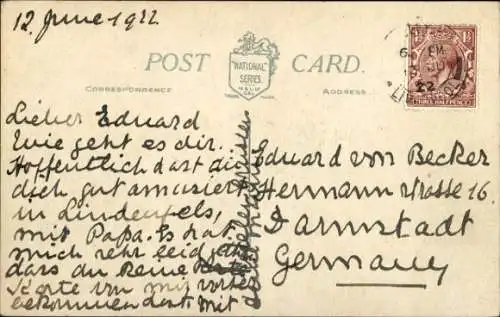 12 June 1922
POST CARD.
"NATIONAL"
SERIES
CORRESPONDENCE
ADDRESS
THREE HALF PENCE
22
Lieber Eduard
Wie geht es dir.
Hoffentlich dast du
dich gut amusiert
in Lindenfels,
mit Papa. Es hat
mich sehr leid getan
dass du keine
Karte von mir vorher
bekommen hast. Mit
Eduard von Becker
Hermannstrasse 16.
Darmstadt
Germany